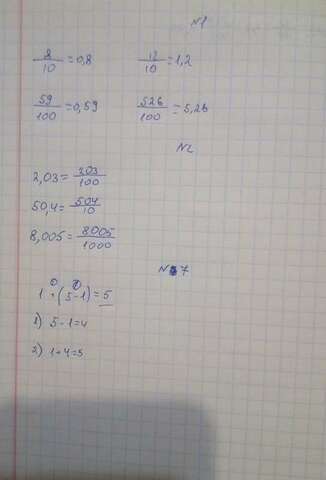 №1
8/10 = 0,8 12/10 = 1,2
59/100 = 0,59 526/100 = 5,26
№2
2,03 = 203/100
50,4 = 504/10
8,005 = 8005/1000
№7
1 + (5 - 1) = 5
1) 5 - 1 = 4
2) 1 + 4 = 5